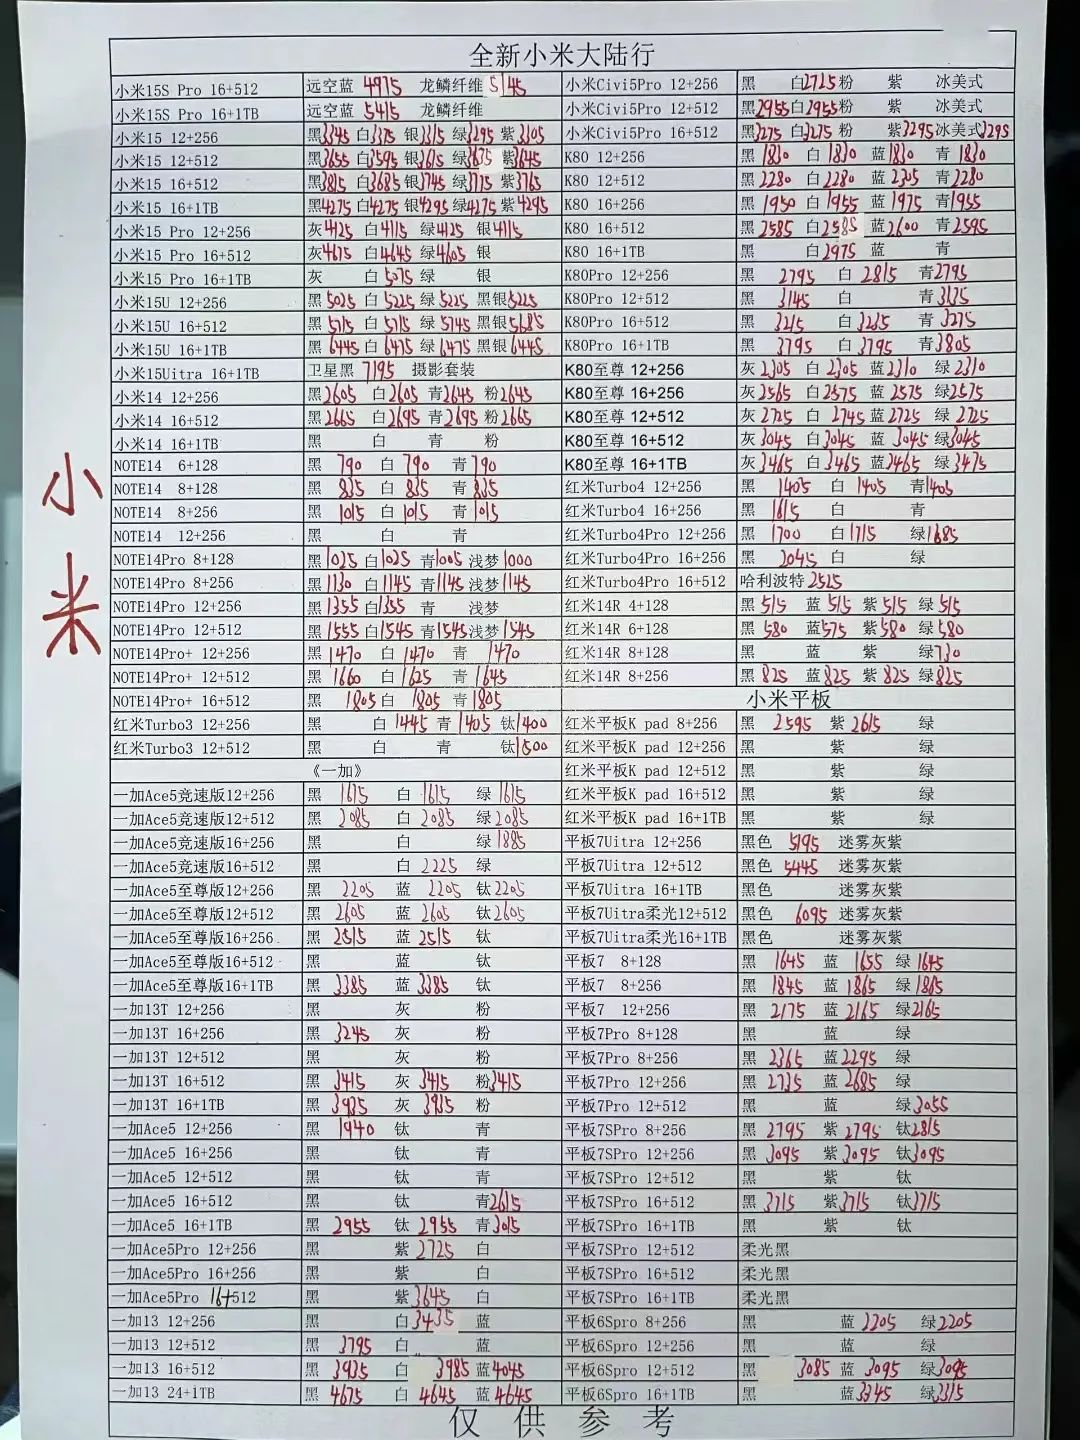 全新小米大陆行
小米15S Pro 16+512 远空蓝 4975 龙鳞纤维 5145 小米Civi5Pro 12+256 黑 白2725粉 紫 冰美式
小米15S Pro 16+1TB 远空蓝 5415 龙鳞纤维 小米Civi5Pro 12+512 黑2955白2955粉 紫 冰美式
小米15 12+256 黑3345 白3375 银3315 绿3295 紫3305 小米Civi5Pro 16+512 黑3275 白3275 粉 紫3295冰美式3295
小米15 12+512 黑3655 白3595 银3615 绿3675 紫3645 K80 12+256 黑 1830 白 1830 蓝1830 青 1830
小米15 16+512 黑3815 白3685银3745 绿3775 紫3765 K80 12+512 黑 2280 白 2280 蓝 2305 青2280
小米15 16+1TB 黑4275 白4275 银4295 绿4275 紫4295 K80 16+256 黑 1950 白 1955 蓝 1975 青1955
小米15 Pro 12+256 灰4125 白4115 绿4125 银4115 K80 16+512 黑 2585 白2585 蓝2600 青2595
小米15 Pro 16+512 灰4675 白4645 绿4605 银 K80 16+1TB 黑 白2975 蓝 青
小米15 Pro 16+1TB 灰 白 5075 绿 银 K80Pro 12+256 黑 2795 白 2815 青2795
小米15U 12+256 黑 5025 白 5225 绿 5225 黑银5225 K80Pro 12+512 黑 3145 白 青 3135
小米15U 16+512 黑 5715 白 5715 绿 5745 黑银5685 K80Pro 16+512 黑 3215 白 3235 青 3275
小米15U 16+1TB 黑 6445 白 6475 绿 6475 黑银 6445 K80Pro 16+1TB 黑 3795 白 3795 青3805
小米15Uitra 16+1TB 卫星黑 7195 摄影套装 K80至尊 12+256 灰 2305 白 2305 蓝2310 绿 2310
小米14 12+256 黑2605 白2605 青2645 粉2645 K80至尊 16+256 灰 2565 白2575 蓝 2575 绿2575
小米14 16+512 黑2665 白2695 青2695 粉2665 K80至尊 12+512 灰 2725 白 2745 蓝2725 绿 2725
小米14 16+1TB 黑 白 青 粉 K80至尊 16+512 灰 3045 白3045 蓝 3045 绿3045
NOTE14 6+128 黑 790 白 790 青 790 K80至尊 16+1TB 灰 3465 白 3465 蓝3465 绿 3475
NOTE14 8+128 黑 835 白 835 青 835 红米Turbo4 12+256 黑 1405 白 1405 青1405
NOTE14 8+256 黑 1015 白 1015 青 1015 红米Turbo4 16+256 黑 1615 白 青
NOTE14 12+256 黑 白 青 红米Turbo4Pro 12+256 黑 1700 白1715 绿1685
NOTE14Pro 8+128 黑1025 白1025 青1005 浅梦1000 红米Turbo4Pro 16+256 黑 2045 白 绿
NOTE14Pro 8+256 黑1130 白1145 青1145 浅梦1145 红米Turbo4Pro 16+512 哈利波特2525
NOTE14Pro 12+256 黑1355 白1355 青 浅梦 红米14R 4+128 黑 515 蓝 515 紫 515 绿 515
NOTE14Pro 12+512 黑1555 白1545 青1545浅梦 1545 红米14R 6+128 黑 580 蓝575 紫580 绿580
NOTE14Pro+ 12+256 黑 1470 白 1470 青 1470 红米14R 8+128 黑 蓝 紫 绿730
NOTE14Pro+ 12+512 黑 1660 白 1625 青 1645 红米14R 8+256 黑 825 蓝825 紫 825 绿825
NOTE14Pro+ 16+512 黑 1805 白 1805 青1805 小米平板
红米Turbo3 12+256 黑 白 1445 青 1405 钛1400 红米平板K pad 8+256 黑 2595 紫 2615 绿
红米Turbo3 12+512 黑 白 青 钛1500 红米平板K pad 12+256 黑 紫 绿
《一加》 红米平板K pad 12+512 黑 紫 绿
一加Ace5竞速版12+256 黑 1615 白 1615 绿 1615 红米平板K pad 16+512 黑 紫 绿
一加Ace5竞速版12+512 黑 2085 白 2085 绿2085 红米平板K pad 16+1TB 黑 紫 绿
一加Ace5竞速版16+256 黑 白 绿 1885 平板7Uitra 12+256 黑色 5195 迷雾灰紫
一加Ace5竞速版16+512 黑 白 2225 绿 平板7Uitra 12+512 黑色 5445 迷雾灰紫
一加Ace5至尊版12+256 黑 2205 蓝 2205 钛2205 平板7Uitra 16+1TB 黑色 迷雾灰紫
一加Ace5至尊版12+512 黑 2605 蓝 2605 钛2605 平板7Uitra柔光12+512 黑色 6095 迷雾灰紫
一加Ace5至尊版16+256 黑 2515 蓝 2515 钛 平板7Uitra柔光16+1TB 黑色 迷雾灰紫
一加Ace5至尊版16+512 黑 蓝 钛 平板7 8+128 黑 1645 蓝 1655 绿1645
一加Ace5至尊版16+1TB 黑 3385 蓝 3385 钛 平板7 8+256 黑 1845 蓝 1865 绿 1865
一加13T 12+256 黑 灰 粉 平板7 12+256 黑 2175 蓝 2165 绿2165
一加13T 16+256 黑 3245 灰 粉 平板7Pro 8+128 黑 蓝 绿
一加13T 12+512 黑 灰 粉 平板7Pro 8+256 黑 2365 蓝2295 绿
一加13T 16+512 黑 3415 灰 3415 粉3415 平板7Pro 12+256 黑 2735 蓝 2685 绿
一加13T 16+1TB 黑 3935 灰 3935 粉 平板7Pro 12+512 黑 蓝 绿3055
一加Ace5 12+256 黑 1940 钛 青 平板7SPro 8+256 黑 2795 紫 2795 钛2815
一加Ace5 16+256 黑 钛 青 平板7SPro 12+256 黑 3095 紫 3095 钛3095
一加Ace5 12+512 黑 钛 青 平板7SPro 12+512 黑 紫 钛
一加Ace5 16+512 黑 钛 青2615 平板7SPro 16+512 黑 3715 紫3715 钛3715
一加Ace5 16+1TB 黑 2955 钛 2955 青3015 平板7SPro 16+1TB 黑 紫 钛
一加Ace5Pro 12+256 黑 紫 2725 白 平板7SPro 12+512 柔光黑
一加Ace5Pro 16+256 黑 紫 白 平板7SPro 16+512 柔光黑
一加Ace5Pro 16+512 黑 紫3645 白 平板7SPro 16+1TB 柔光黑
一加13 12+256 黑 白3435 蓝 平板6Spro 8+256 黑 蓝 2205 绿2205
一加13 12+512 黑 3795 白 蓝 平板6Spro 12+256 黑 蓝 绿
一加13 16+512 黑 3935 白 3985 蓝4045 平板6Spro 12+512 黑 3085 蓝 3095 绿3095
一加13 24+1TB 黑 4675 白 4645 蓝 4645 平板6Spro 16+1TB 黑 蓝3345 绿3315
仅供参考
小米